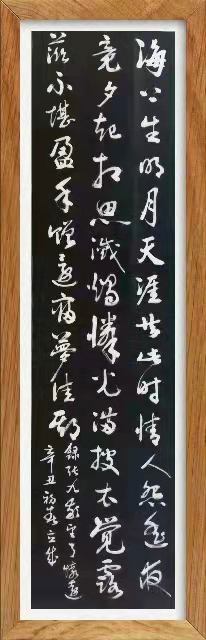 海上生明月天涯共此时情人怨遥夜
竟夕起相思灭烛怜光满披衣觉露
滋不堪盈手赠还寝梦佳期
录张九龄望月怀远
辛丑初春立成